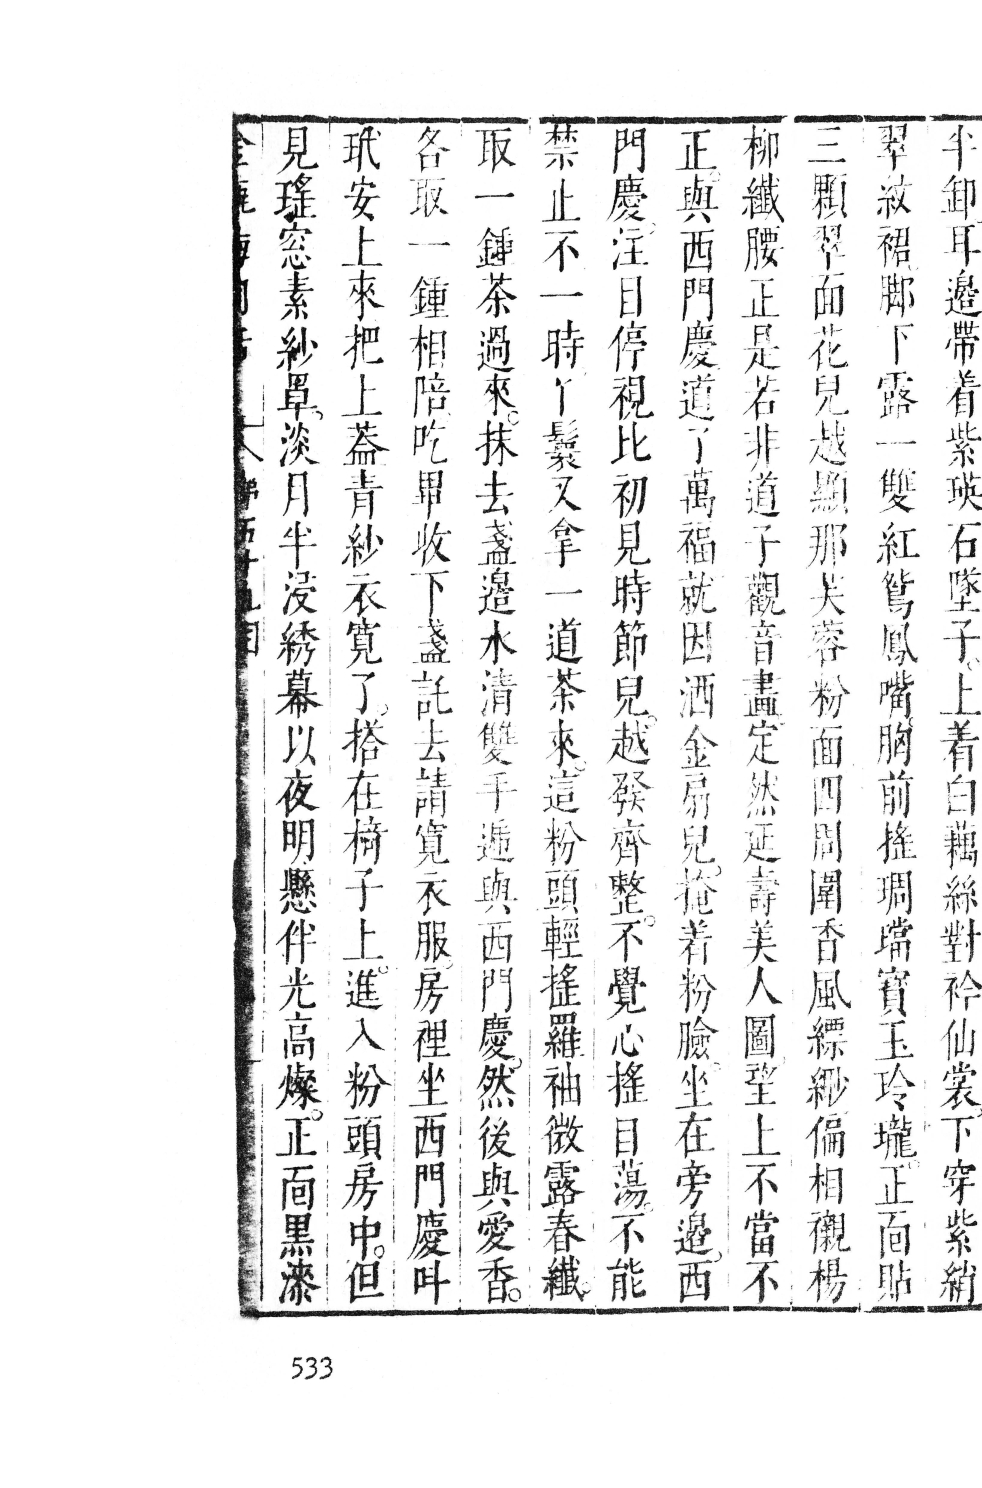 半卸耳邉帶着紫瑛石墜子。上着白藕絲對衿仙裳。下穿紫綃
翠紋裙。脚下露一雙紅鴛鳳嘴。胸前搖琱璫寳玉玲瓏。正面貼
三顆翠面花兒越顯那芙蓉粉面四周圍香風縹緲偏相襯楊
柳纖腰正是若非道子觀音畫。定然延壽美人圖望上不當不
正。與西門慶道了萬福就因洒金扇兒。掩着粉臉。坐在旁邉。西
門慶。注目停視比初見時節兒。越發齊整。不覺心搖目蕩。不能
禁止不一時丫鬟又拿一道茶來。這粉頭輕搖羅袖微露春纖。
取一鍾茶過來。抹去盞邉水漬雙手遞與西門慶。然後與愛香。
各取一鍾相陪吃畢收下盞託去請寛衣服。房裡坐西門慶呌
玳安上來把上葢青紗衣寛了。搭在椅子上。進入粉頭房中。但
見瑤窓素紗罩。淡月半浸綉幕以夜明懸伴光高燦。正面黒漆
533